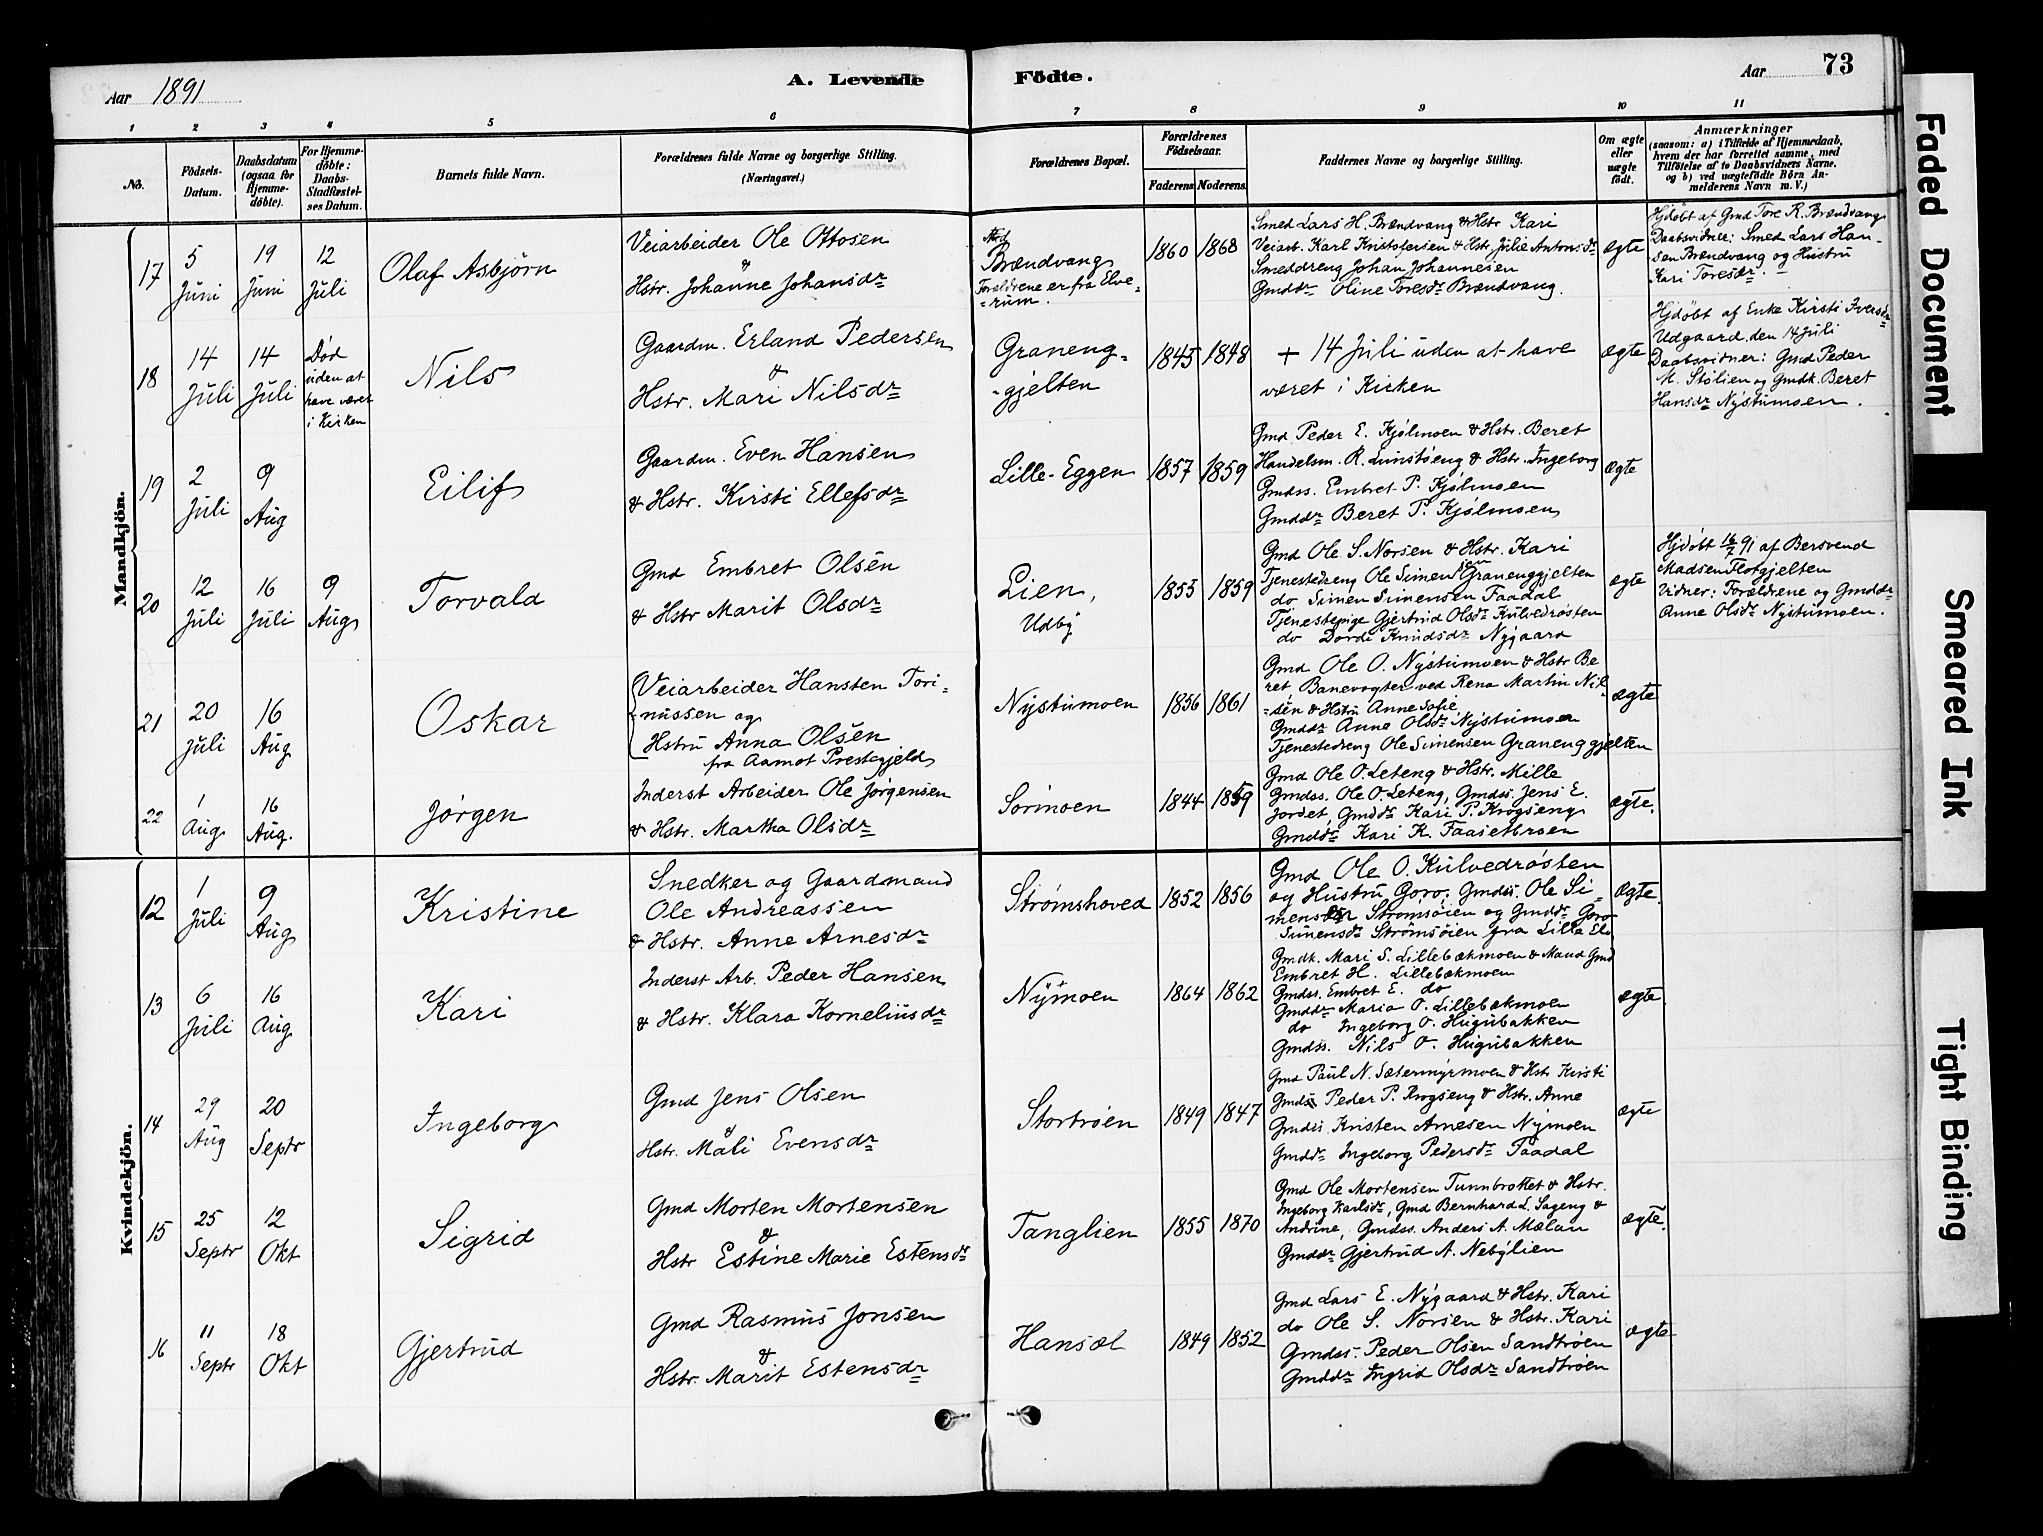 Aar 1891
A. Levende Födte.
Aar 73
1 2 3 4 5 6 7 8 9 10 11
No.
Födsels-
Datum.
Daabsdatum
(ogsaa for
Hjemme-
döbte).
For Hjemme-
döbte:
Daabs-
Stadfæstel-
ses Datum.
Barnets fulde Navn.
Forældrenes fulde Navne og borgerlige Stilling.
(Næringsvei.)
Forældrenes Bopæl.
Forældrenes
Födselsaar.
Faderens Moderens
Faddernes Navne og borgerlige Stilling.
Om ægte
eller
uægte
födt.
Anmærkninger
(saasom: a) i Tilfælde af Hjemmedaab,
hvem der har forrettet samme, med
Tilföielse af to Daabsvidners Navne.
og b) ved uægtefödte Börn An-
melderens Navn m. V.)
Mandkjön.
17
5
Juni
19
Juni
12
Juli
Olaf Asbjörn
Veiarbeider Ole Ottosen
&
Hstr. Johanne Johansdr
Brændvang
Forældrene er fra Elve-
-rum.
1860 1868
Smed Lars H. Brændvang & Hstr Kari
Veiarb. Karl Kristofersen & Hstr. Julie Antonsdr
Smeddreng Johan Johannesen
Gmddr Oline Toresdr Brændvang.
ægte
Hjdøbt af Gmd Tore R. Brændvang
Daabsvidner: Smed Lars Han-
sen Brændvang og Hustru
Kari Toresdr. —
18
14
Juli
14
Juli
Død
uden at
have været
i Kirken
Nils
Gaardm. Erland Pedersen
&
Hstr. Mari Nilsdr
Graneng-
-gjelten
1845 1848
+ 14 Juli uden at have
været i Kirken
ægte
Hjdøbt af Enke Kirsti Iversdr
Udgaard, den 14 Juli
Daabsvidner: Gmd Peder
M. Stølien og Gmdk. Beret
Hansdr Nystumoen.
19
2
Juli
9
Aug
Eilif
Gaardm. Even Hansen
& Hstr. Kirsti Ellefsdr
Lille-Eggen
1857 1859
Gmd Peder E. Kjølmoen & Hstr. Beret
Handelsm. R. Lunstøeng & Hstr. Ingeborg
Gmdss. Embret P. Kjølmoen
Gmddr Beret P. Kjølmoen
ægte
20
12
Juli
16
Juli
9
Aug
Torvald
Gmd Embret Olsen
& Hstr Marit Olsdr
Lien,
Udby
1855 1859
Gmd Ole S. Norsen & Hstr. Kari
Tjenestedreng Ole Simensen Granenggjelten
do Simen Simensen Faadal
Tjenestepige Gjertrud Olsdr Kulvedrøsten
do Dorde Knudsdr Nygaard
ægte
Hjdøbt 16/7 91 af Bersvend
Madsen Flotgjelten
Vidner: Forældrene og Gmddr
Anne Olsdr Nystumoen.
21
20
Juli
16
Aug
Oskar
Veiarbeider Hansten Tori-
-nussen og
Hstru Anna Olsen
fra Aamot Prestegjeld
Nystumoen
1856 1861
Gmd Ole O. Nystumoen & Hstr Be
ret, Banevogter ved Rena Martin Nil-
-sen & Hstru Anne Sofie
Gmddr Anne Olsdr Nystumoen
Tjenestedreng Ole Simensen Granenggjelten
ægte
22
1
Aug
16
Aug.
Jørgen
Inderst Arbeider Ole Jørgensen
& Hstr. Martha Olsdr
Sørmoen
1844 1859
Gmd Ole O. Leteng & Hstr. Mille
Gmdss. Ole O. Leteng, Gmdss. Jens E.
Jordet, Gmddr Kari P. Krogseng
Gmddr Kari K. Faasetbroen
ægte.
Kvindekjön.
12
1
Juli
9
Aug
Kristine
Snedker og Gaardmand
Ole Andreassen
& Hstr. Anne Arnesdr
Strømshoved
1852 1856
Gmd Ole O. Kulvedrøsten
og Hustru Goro, Gmdss. Ole Si-
mensen Strømsøien og Gmddr Goro
Simensdr Strømsøien fra Lille El
ægte.
13
6
Juli
16
Aug
Kari
Inderst Arb. Peder Hansen
& Hstr. Klara Korneliusdr
Nymoen
1864 1862
Gmdk. Mari S. Lillebækmoen & Mand Gmd
Embret H. Lillebækmoen
Gmdss. Embret E. do
Gmddr Maria O. Lillebækmoen
do Ingeborg O. Hugubakken
Gmdss. Nils O. Hugubakken
ægte.
14
29
Aug
20
Septr
Ingeborg
Gmd Jens Olsen
&
Hstr. Mali Evensdr
Stortrøen
1849 1847
Gmd Paul N. Sætermyrmoen & Hstr Kirsti
Gmd Peder P. Krogseng & Hstr. Anne
Gmdss Kristen Arnesen Nymoen
Gmddr Ingeborg Pedersdr Faadal
ægte
15
25
Septr
12
Okt
Sigrid
Gmd Morten Mortensen
&
Hstr Estine Marie Estensdr
Tanglien
1855 1870
Gmd Ole Mortensen Tunnbrottet & Hstr.
Ingeborg Karlsdr, Gmd Bernhard L. Sageng &
Andrine, Gmdss. Anders A. Mælan
Gmddr Gjertrud A. Nebylien
ægte.
16
11
Septr
18
Okt
Gjertrud
Gmd Rasmus Jonsen
&
Hstr. Marit Estensdr
Hansæl
1849 1852
Gmd Lars E. Nygaard & Hstr. Kari
do Ole S. Norsen & Hstr. Kari
Gmdss. Peder Olsen Sandtrøen
Gmddr Ingrid Olsdr Sandtrøen
ægte
Faded Document
Smeared Ink
Tight Binding